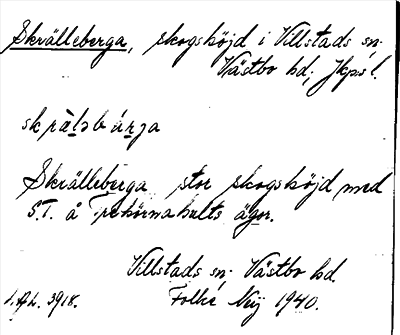 Skrälleberga, skogshöjd i Villstads sn.
Västbo hd; Jkps l.
skräləbárja
Skrälleberga stor skogshöjd med
S.T. å Trehörnahults ägor.
Villstads sn. Västbo hd.
3918. Folke Nij 1940.